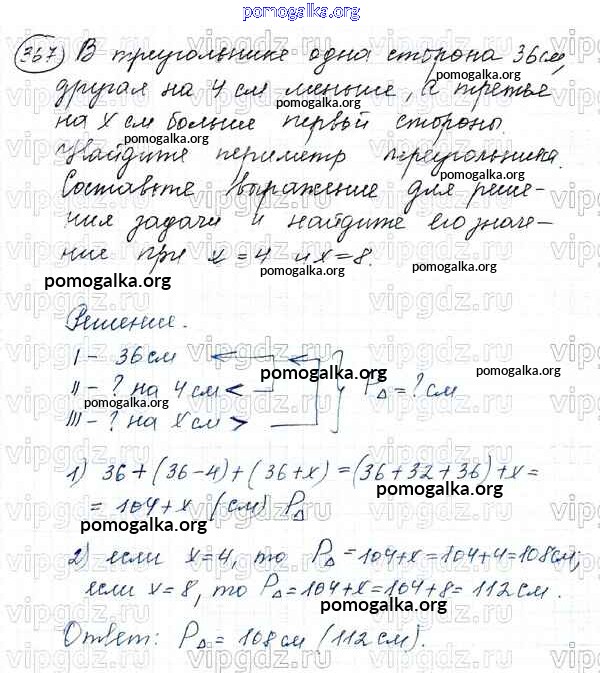 pomogalka.org
367) В треугольнике одна сторона 36 см,
другая на 4 см меньше, а третья
на x см больше первой стороны.
Найдите периметр треугольника.
Составьте выражение для реше-
ния задачи и найдите его значе-
ние при x = 4 и x = 8.
Решение.
I - 36 см
II - ? на 4 см <
III - ? на x см >
P△ = ? см
1) 36 + (36 - 4) + (36 + x) = (36 + 32 + 36) + x =
= 104 + x (см) P△
2) если x = 4, то P△ = 104 + x = 104 + 4 = 108 см;
если x = 8, то P△ = 104 + x = 104 + 8 = 112 см.
Ответ: P△ = 108 см (112 см).